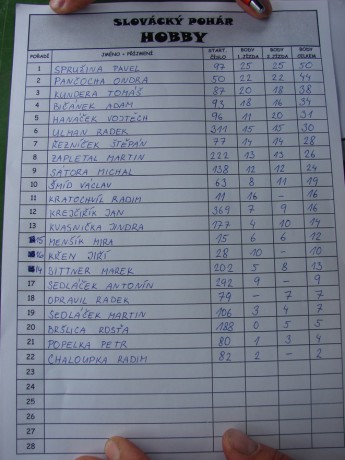 SLOVÁCKÝ POHÁR
HOBBY
POŘADÍ JMÉNO + PŘÍJMENÍ START. ČÍSLO BODY 1. JÍZDA BODY 2. JÍZDA BODY CELKEM
1 SPRUŠINA PAVEL 97 25 25 50
2 PANČOCHA ONDRA 50 22 22 44
3 KUNDERA TOMÁŠ 87 20 18 38
4 BIČÁNEK ADAM 93 18 16 34
5 HANÁČEK VOJTĚCH 96 11 20 31
6 ULMAN RADEK 311 15 15 30
7 ŘEZNÍČEK ŠTĚPÁN 77 14 14 28
8 ZAPLETAL MARTIN 222 13 13 26
9 SÁTORA MICHAL 138 12 12 24
10 ŠMÍD VÁCLAV 63 8 11 19
11 KRATOCHVÍL RADIM 11 16 – 16
12 KREJČIŘÍK JAN 369 7 9 16
13 KVASNIČKA JINDRA 177 4 10 14
15 MENŠÍK MIRA 15 6 6 12
16 KŘEN JIŘÍ 28 10 – 10
14 BITTNER MAREK 202 5 8 13
17 SEDLÁČEK ANTONÍN 292 9 – 9
18 OPRAVIL RADEK 79 – 7 7
19 SEDLÁČEK MARTIN 106 3 4 7
20 BRŠLICA ROSŤA 188 0 5 5
21 POPELKA PETR 80 1 3 4
22 CHALOUPKA RADIM 82 2 – 2
23
24
25
26
27
28